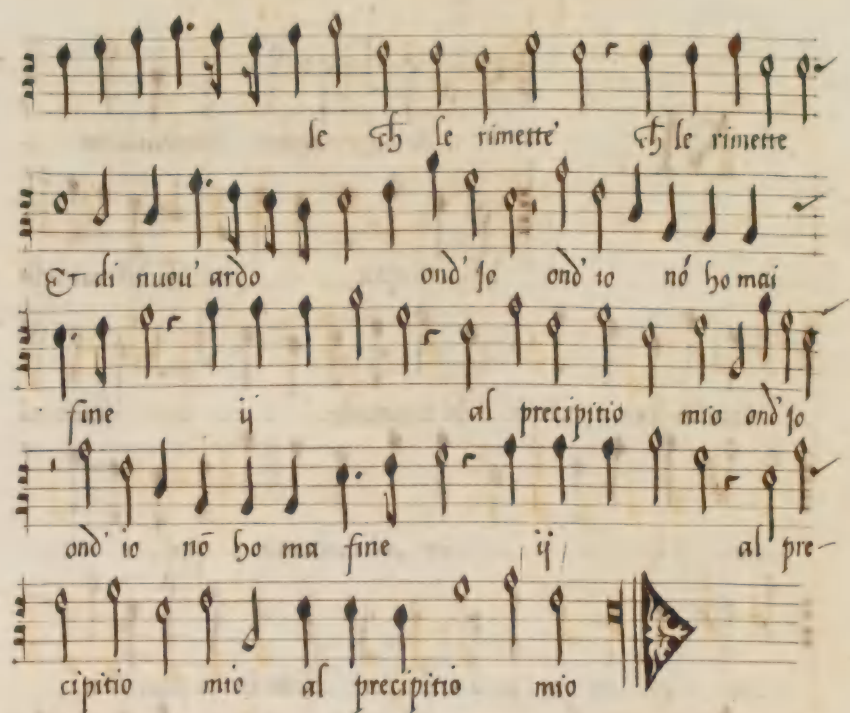 le ch le rimette' ch le rimette
Et di nuou' ardo ond' Jo ond' io nō ho mai
fine ij al precipitio mio ond' Jo
ond' io nō ho ma fine ij al pre-
cipitio mio al precipitio mio